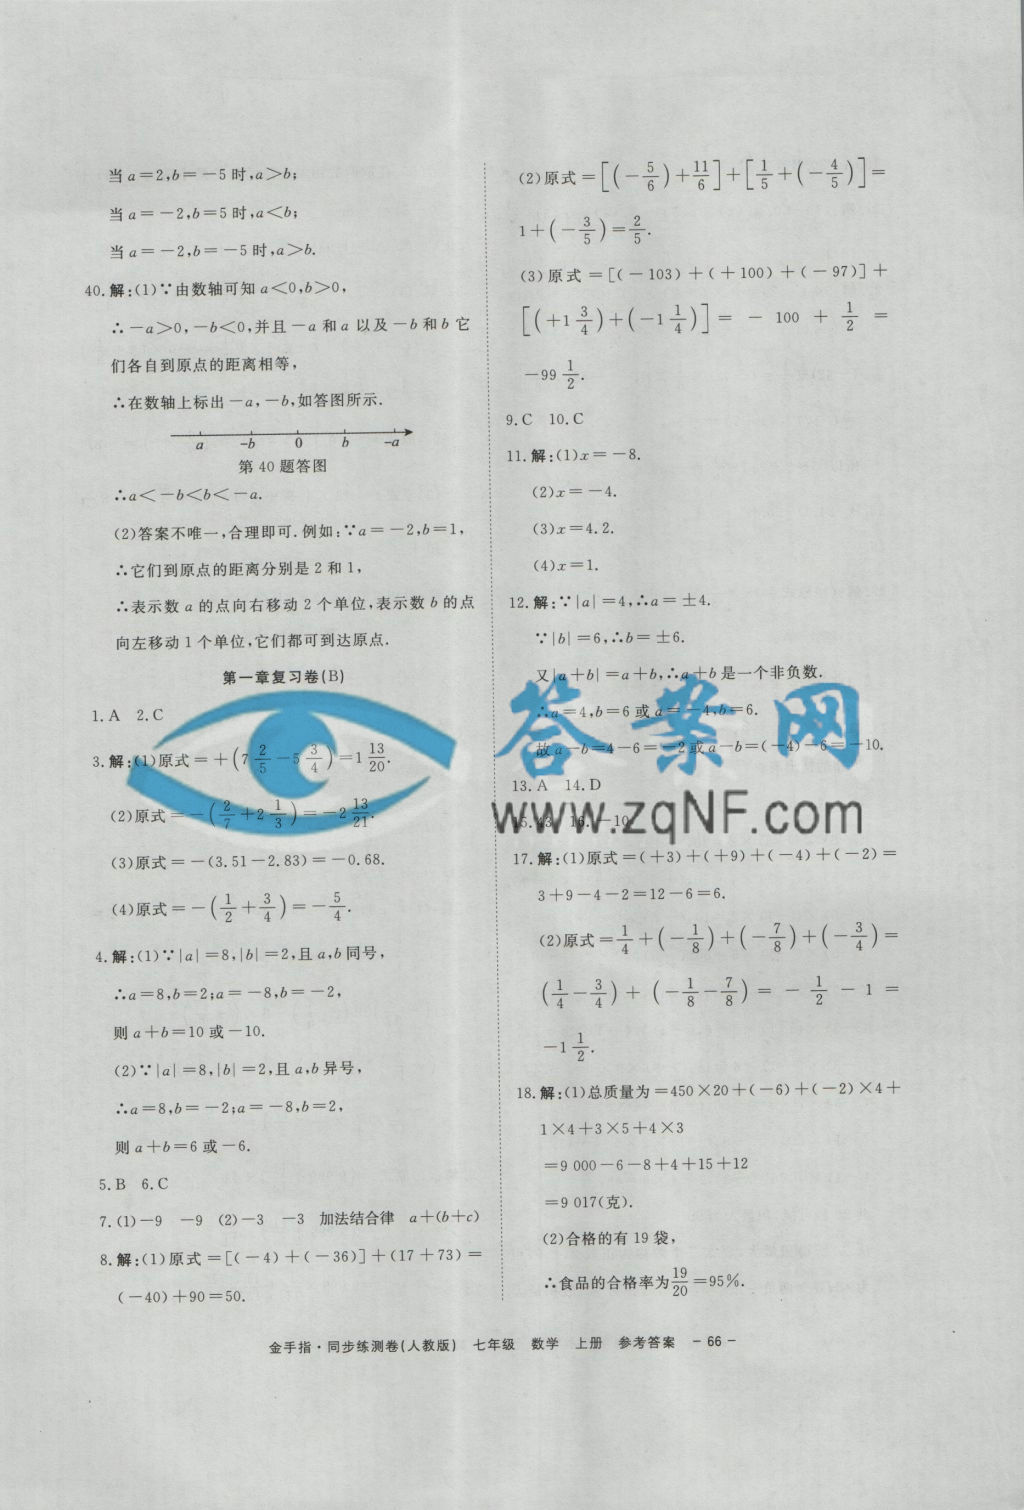 当a=2,b=-5时,a>b;
当a=-2,b=5时,a<b;
当a=-2,b=-5时,a>b.
40.解:(1)∵由数轴可知a<0,b>0,
∴-a>0,-b<0,并且-a和a以及-b和b它
们各自到原点的距离相等,
∴在数轴上标出-a,-b,如答图所示.
a -b 0 b -a
第40题答图
∴a<-b<b<-a.
(2)答案不唯一,合理即可.例如:∵a=-2,b=1,
∴它们到原点的距离分别是2和1,
∴表示数a的点向右移动2个单位,表示数b的点
向左移动1个单位,它们都可到达原点.
第一章复习卷(B)
1.A 2.C
3.解:(1)原式=+(7 2/5-5 3/4)=1 13/20.
(2)原式=-(2/7+2 1/3)=-2 13/21.
(3)原式=-(3.51-2.83)=-0.68.
(4)原式=-(1/2+3/4)=-5/4.
4.解:(1)∵|a|=8,|b|=2,且a,b同号,
∴a=8,b=2;a=-8,b=-2,
则a+b=10或-10.
(2)∵|a|=8,|b|=2,且a,b异号,
∴a=8,b=-2;a=-8,b=2,
则a+b=6或-6.
5.B 6.C
7.(1)-9 -9 (2)-3 -3 加法结合律 a+(b+c)
8.解:(1)原式=[(-4)+(-36)]+(17+73)=
(-40)+90=50.
(2)原式=[(-5/6)+11/6]+[1/5+(-4/5)]=
1+(-3/5)=2/5.
(3)原式=[(-103)+(+100)+(-97)]+
[(+1 3/4)+(-1 1/4)]=-100+1/2=
-99 1/2.
9.C 10.C
11.解:(1)x=-8.
(2)x=-4.
(3)x=4.2.
(4)x=1.
12.解:∵|a|=4,∴a=±4.
∵|b|=6,∴b=±6.
又|a+b|=a+b,∴a+b是一个非负数.
∴a=4,b=6或a=-4,b=6.
故a-b=4-6=-2或a-b=(-4)-6=-10.
答案网
www.zqNF.com
13.A 14.D
15.43 16.-10
17.解:(1)原式=(+3)+(+9)+(-4)+(-2)=
3+9-4-2=12-6=6.
(2)原式=1/4+(-1/8)+(-7/8)+(-3/4)=
(1/4-3/4)+(-1/8-7/8)=-1/2-1=
-1 1/2.
18.解:(1)总质量为=450×20+(-6)+(-2)×4+
1×4+3×5+4×3
=9 000-6-8+4+15+12
=9 017(克).
(2)合格的有19袋,
∴食品的合格率为19/20=95%.
金手指·同步练测卷(人教版) 七年级 数学 上册 参考答案 -66-